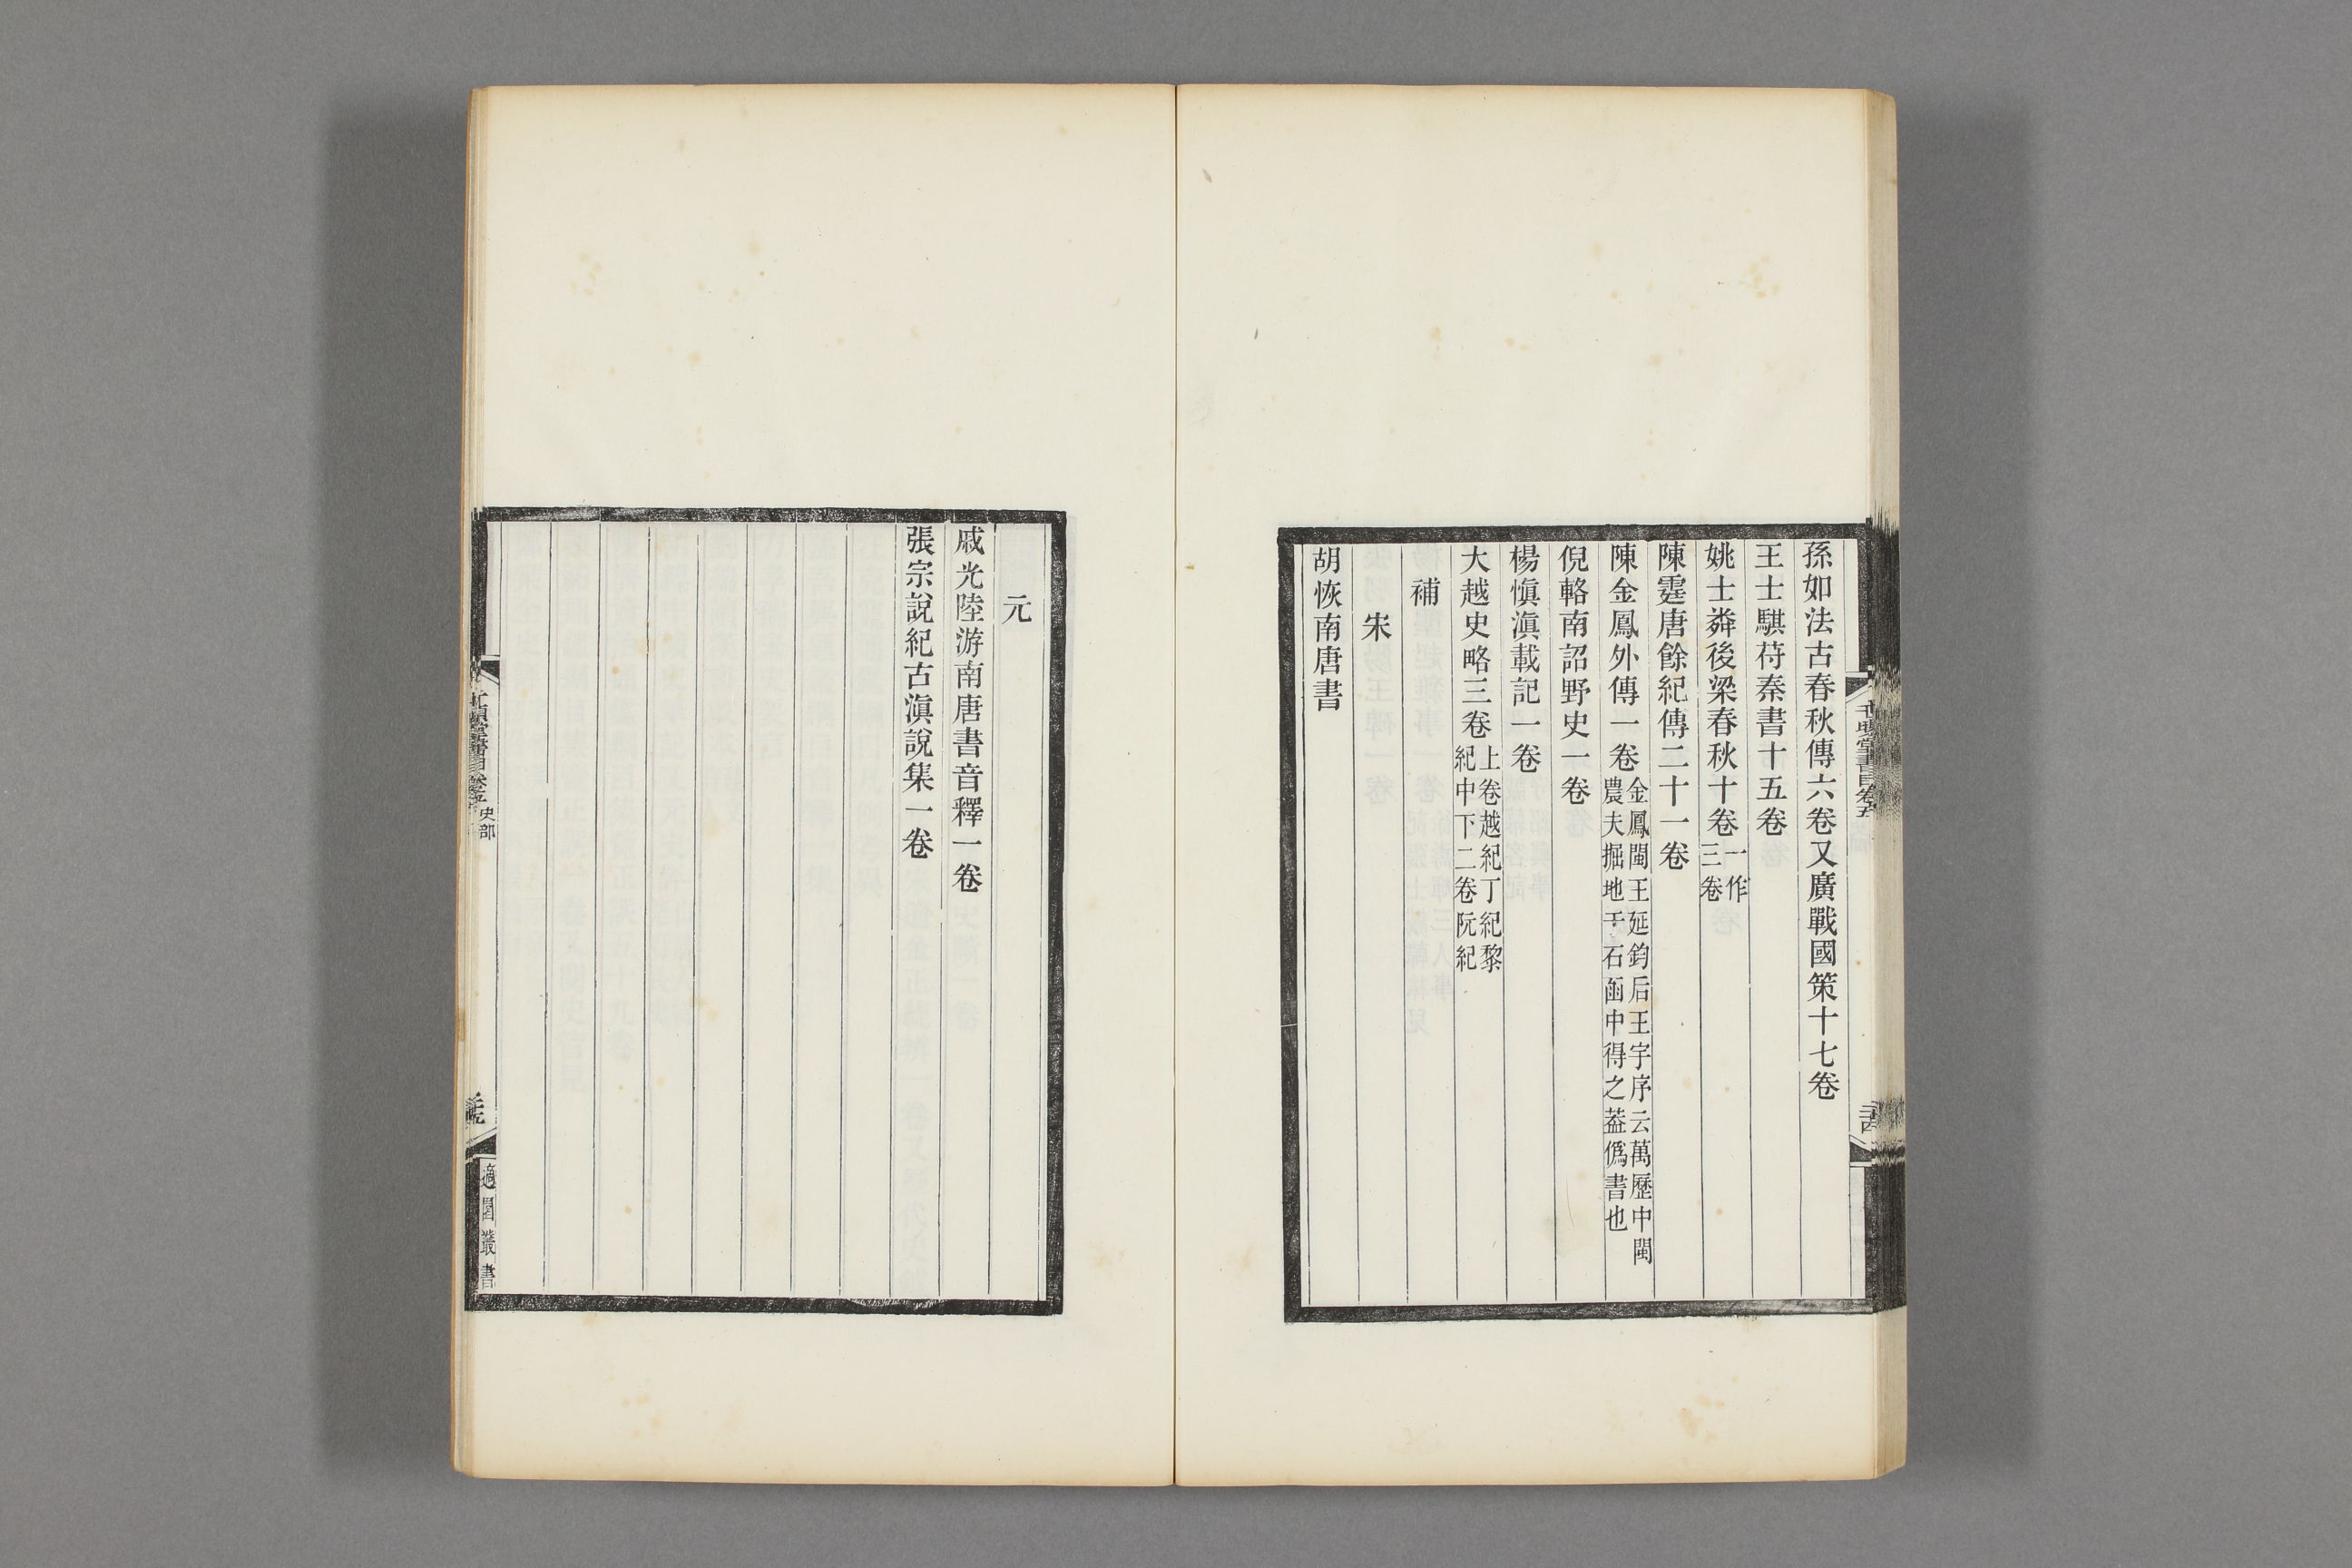 孫如法古春秋傳六卷又廣戰國策十七卷
王士騏苻秦書十五卷
姚士粦後梁春秋十卷一作三卷
陳霆唐餘紀傳二十一卷
陳金鳳外傳一卷金鳳閩王延鈞后王宇序云萬歷中閩農夫掘地于石函中得之葢僞書也
倪輅南詔野史一卷
楊愼滇載記一卷
大越史略三卷上卷越紀丁紀黎紀中下二卷阮紀
補
宋
胡恢南唐書
元
戚光陸游南唐書音釋一卷
張宗說紀古滇說集一卷
史部
適園叢書